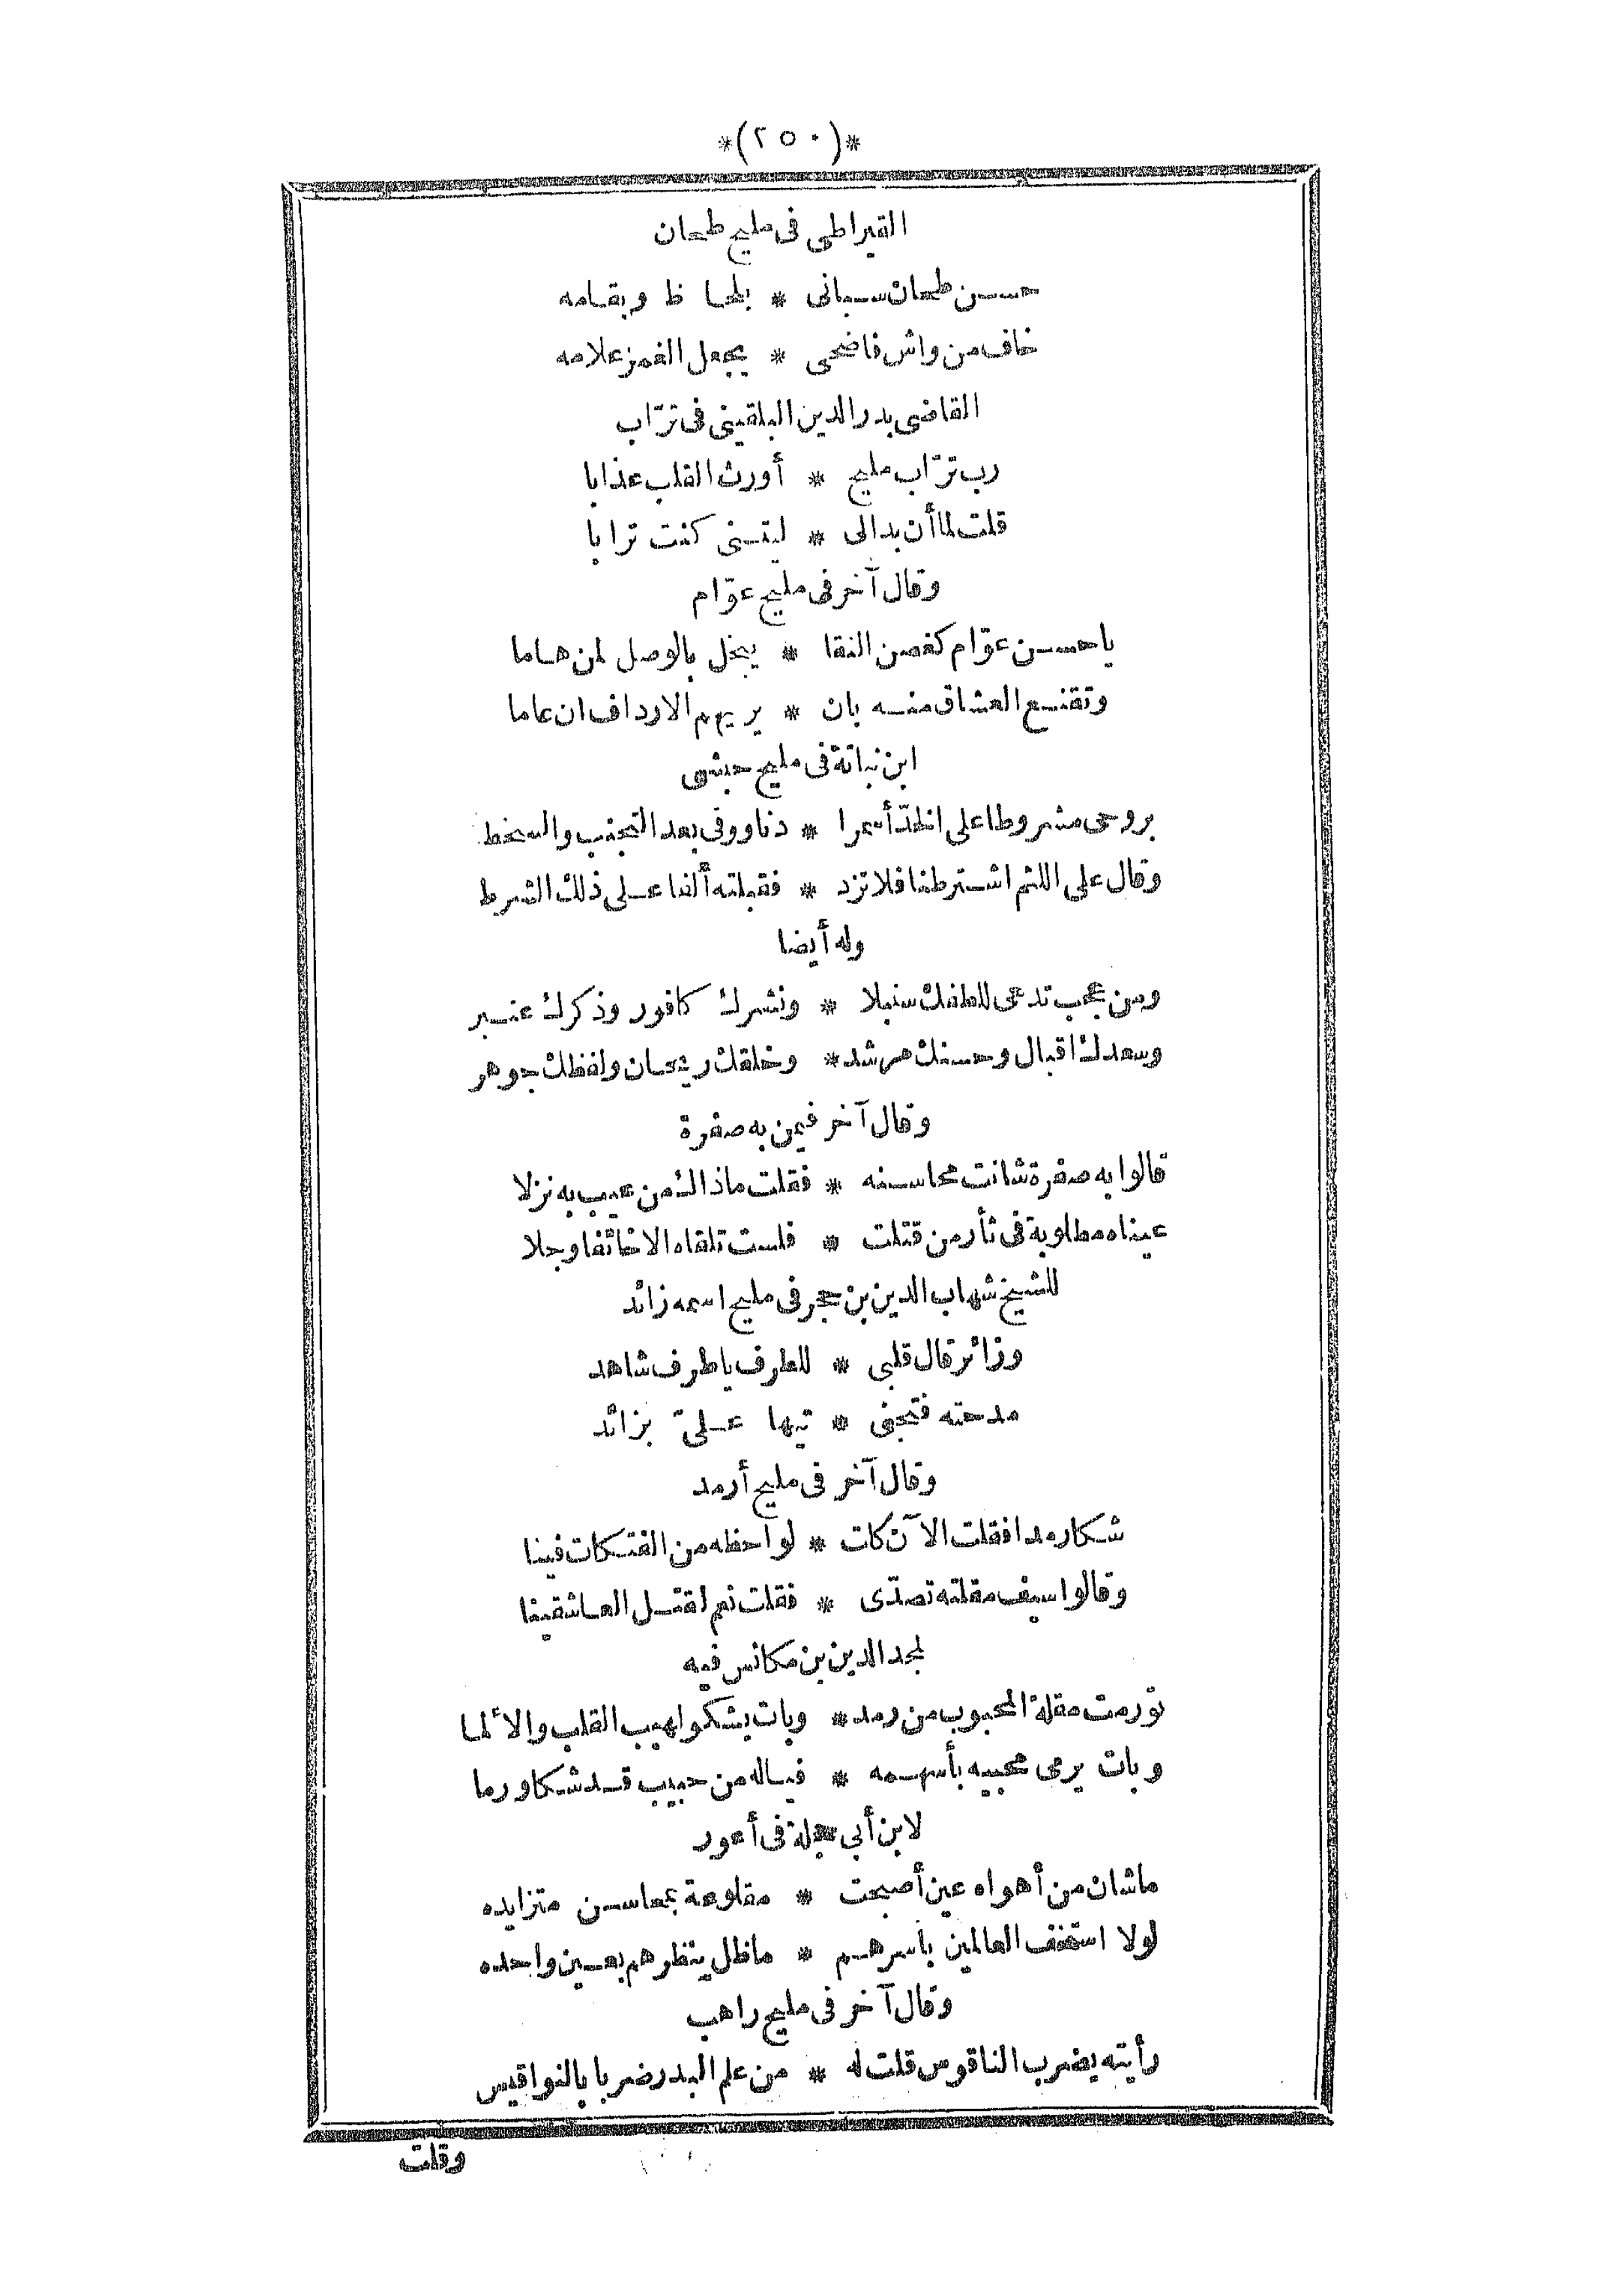 *(٢٥٠)*
القيراطى فى مليح طحان
حسن طحان سبانى * بلحاظ وبقامه
خاف من واش فاضحى * يجعل الغمز علامه
القاضى بدر الدين البلقينى فى ترّاب
رب ترّاب مليح * أورث القلب عذابا
قلت لما أن بدالى * ليتنى كنت ترابا
وقال آخر فى مليح عوّام
ياحسن عوّام كغصن النقا * يبخل بالوصل لمن هاما
وتقنع العشاق منه بان * يريهم الارداف ان عاما
ابن نباتة فى مليح حبشى
بروحى مشروطا على الخدّ أسمرا * دنا ووفى بعد التجنب والسخط
وقال على اللثم اشترطنا فلا تزد * فقبلته ألفا على ذلك الشرط
وله أيضا
ومن عجب تدعى للطفك سنبلا * ونشرك كافور وذكرك عنبر
وسعدك اقبال وحسنك مرشد * وخلقك ريحان ولفظك جوهر
وقال آخر فيمن به صفرة
قالوا به صفرة شانت محاسنه * فقلت ماذاك من عيب به نزلا
عيناه مطلوبة فى ثأر من قتلت * فلست تلقاه الا خائفا وجلا
للشيخ شهاب الدين بن حجر فى مليح اسمه زائد
وزائر قال قلبى * للطرف ياطرف شاهد
مدحته فتجنى * تيها علىّ بزائد
وقال آخر فى مليح أرمد
شكا رمدا فقلت الآن كات * لواحظه من الفتكات فينا
وقالوا سيف مقلته تصدّى * فقلت نعم لقتل العاشقينا
لمجد الدين بن مكانس فيه
تورمت مقلة المحبوب من رمد * وبات يشكو لهيب القلب والألما
وبات يرمى محبيه بأسهمه * فياله من حبيب قد شكا ورما
لابن أبى حجلة فى أعور
ماشان من أهواه عين أصبحت * مقلوعة بمحاسن متزايده
لولا استخف العالمين بأسرهم * ماظل ينظرهم بعين واحده
وقال آخر فى مليح راهب
رأيته يضرب الناقوس قلت له * من علم البدر ضربا بالنواقيس
وقلت